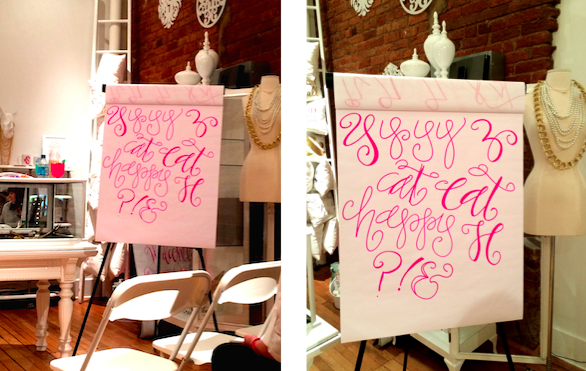 Yyyy z
at eat
happy H
?!&
Yyyy z
at eat
happy H
?!&